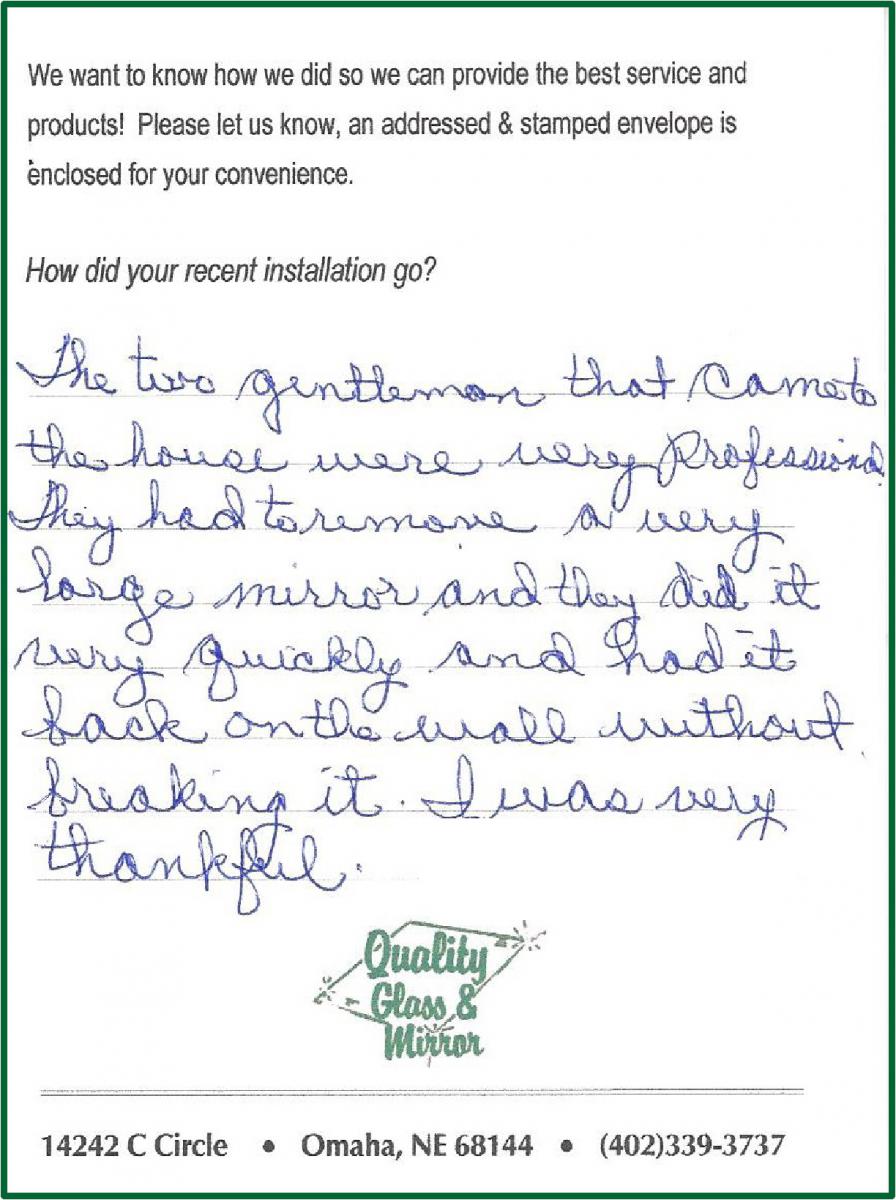 We want to know how we did so we can provide the best service and
products! Please let us know, an addressed & stamped envelope is
enclosed for your convenience.
How did your recent installation go?
The two gentleman that came to
the house were very professional.
They had to remove a very
large mirror and they did it
very quickly and had it
back on the wall without
breaking it. I was very
thankful.
Quality
Glass &
Mirror
14242 C Circle • Omaha, NE 68144 • (402)339-3737